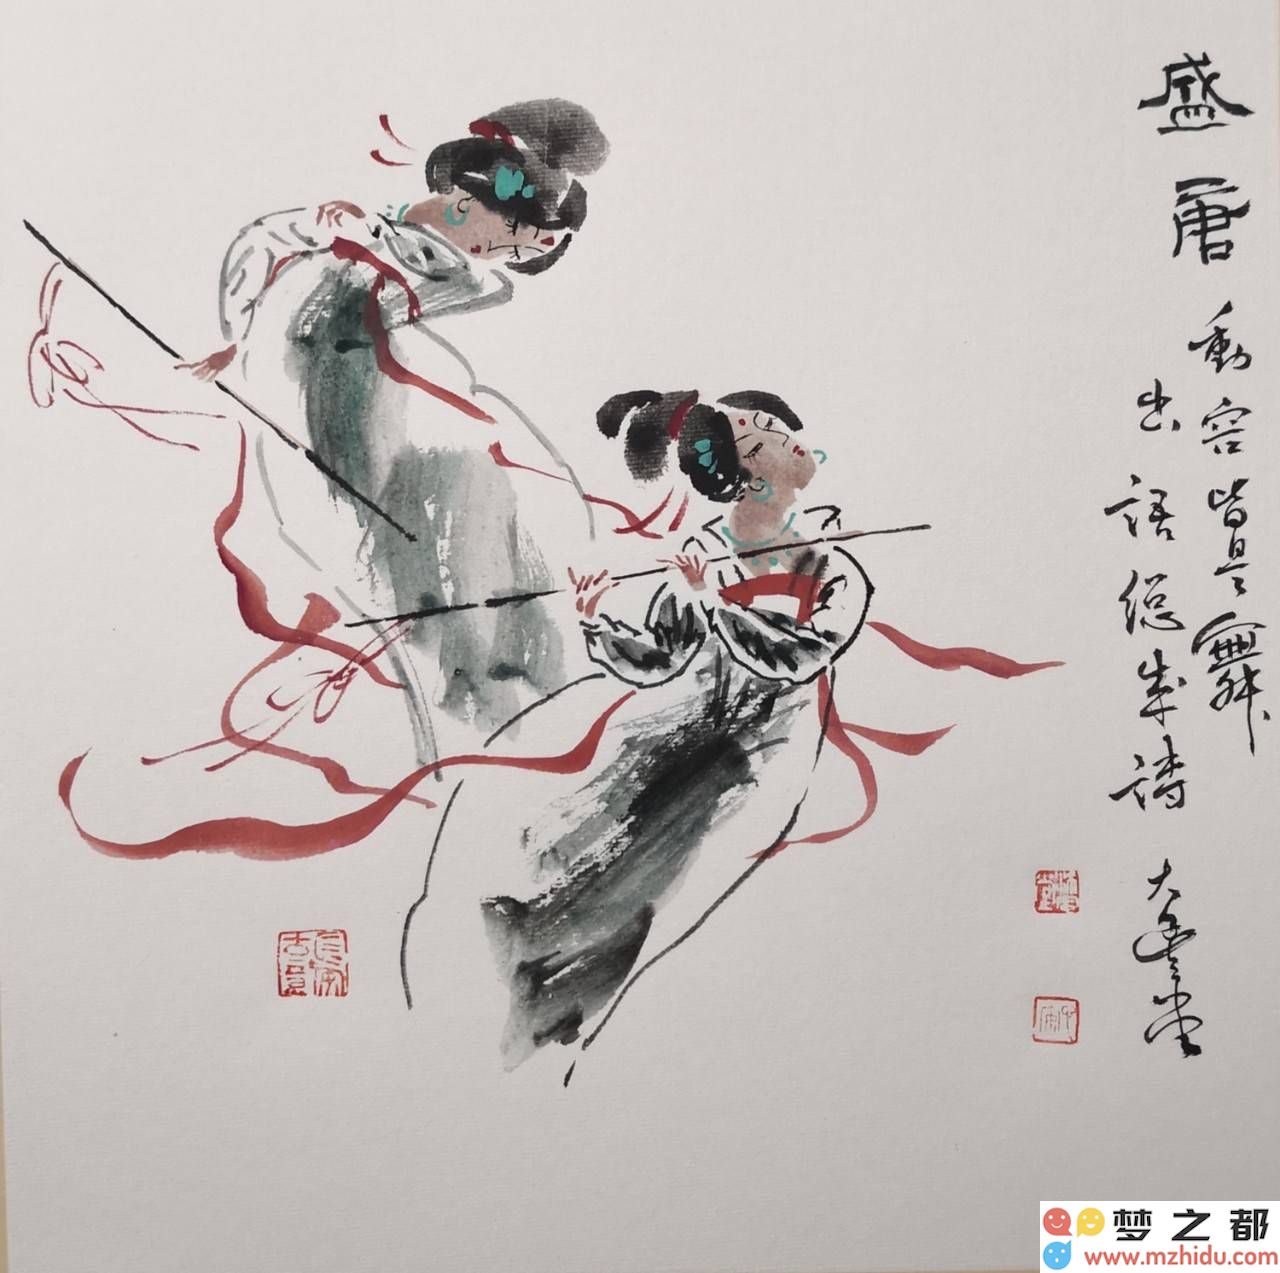 盛唐
動容皆是舞
出语總成詩
大唐堂
梦之都
www.mzhidu.com